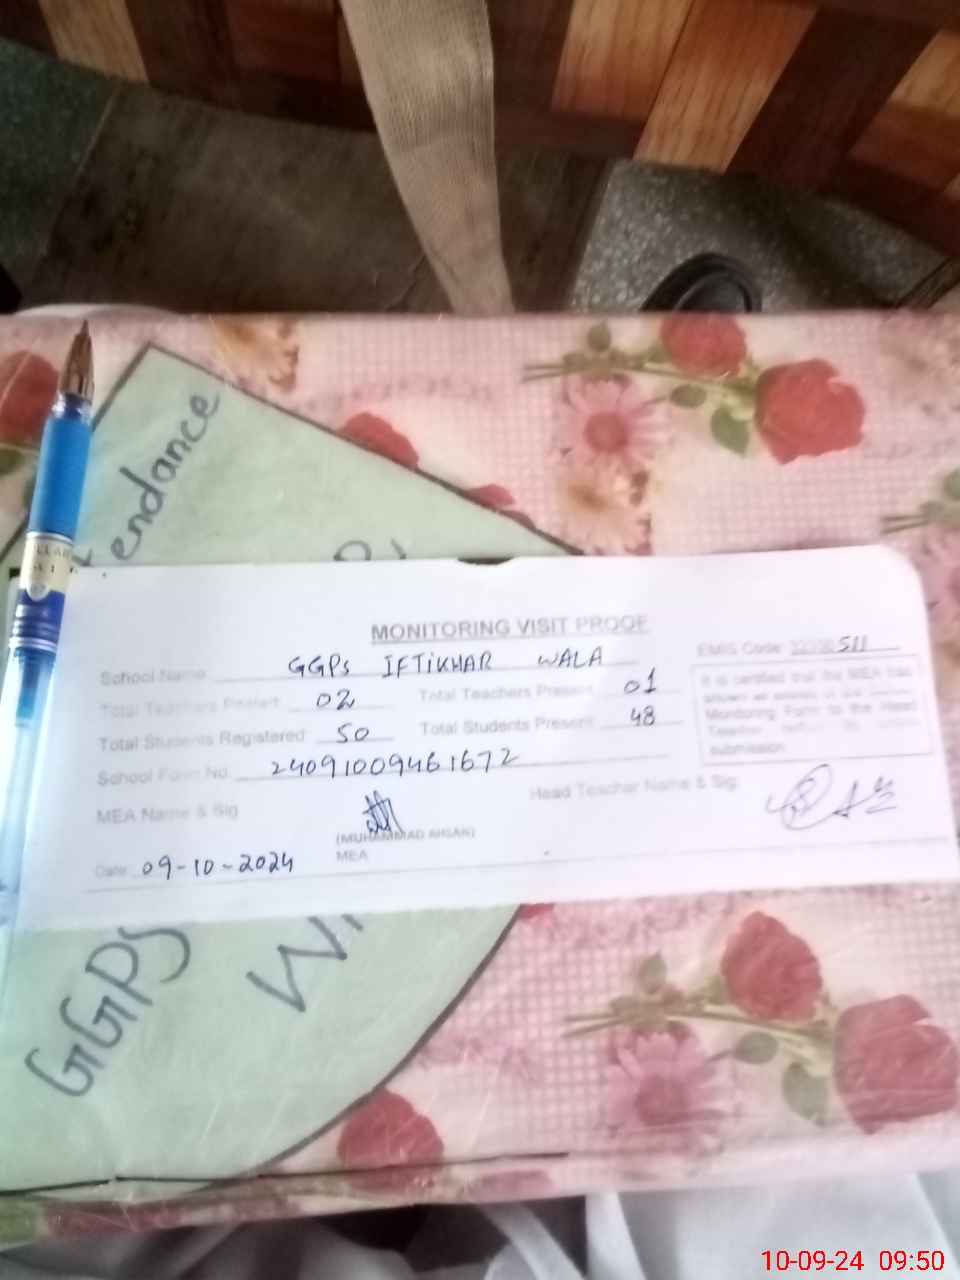 endance
MONITORING VISIT PROOF
EMIS Code 511
School Name GGPS IFTIKHAR WALA
Total Teachers Posted 02 Total Teachers Present 01
Total Students Registered 50 Total Students Present 48
School Form No. 24091009461672
It is certified that the MEA has
Monitoring Form to the Head
Teacher
submission
MEA Name & Sig Head Teacher Name & Sig
(MUHAMMAD AHSAN)
MEA
Date 09-10-2024
GGPS
10-09-24 09:50